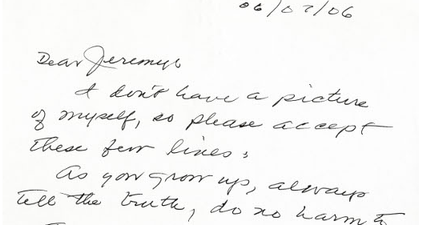 06/07/06
Dear Jeremy,
I don't have a picture
of myself, so please accept
these few lines:
As you grow up, always
tell the truth, do no harm to